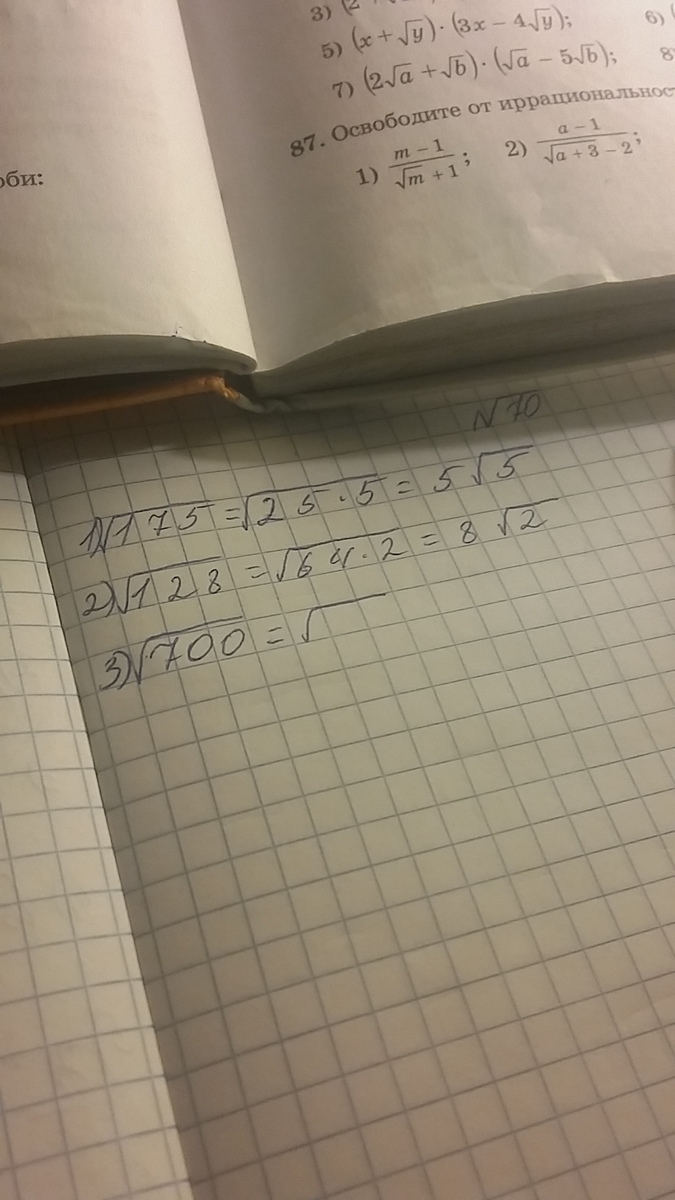 3) (2
5) (x + √y) · (3x − 4√y); 6) (
7) (2√a + √b) · (√a − 5√b); 8
87. Освободите от иррациональнос
1) (m − 1)/(√m + 1); 2) (a − 1)/(√(a + 3) − 2);
оби:
N 70
1) √175 = √25 · 5 = 5 √5
2) √128 = √64 · 2 = 8 √2
3) √700 = √